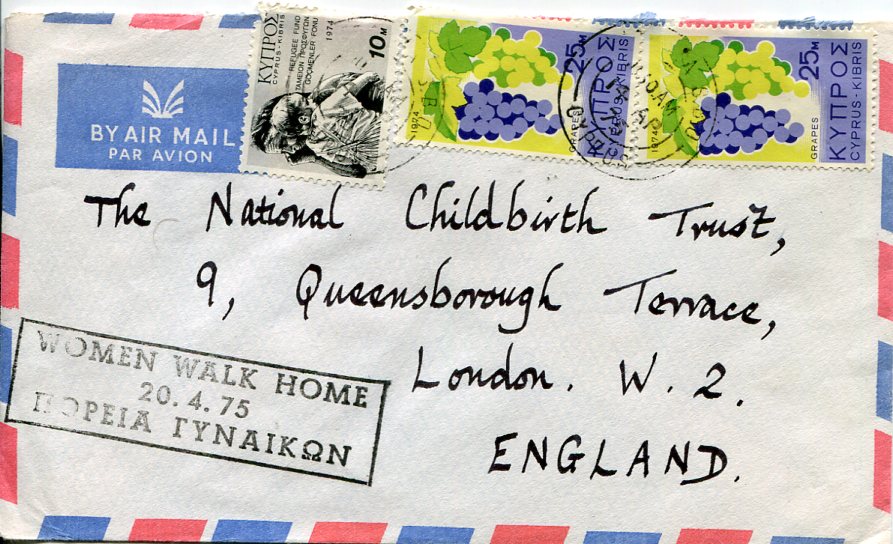 BY AIR MAIL
PAR AVION
ΚΥΠΡΟΣ
CYPRUS - KIBRIS
REFUGEE FUND
1974
10 M
25 M
ΚΥΠΡΟΣ
CYPRUS - KIBRIS
GRAPES
1974
25 M
ΚΥΠΡΟΣ
CYPRUS - KIBRIS
GRAPES
1974
The National Childbirth Trust,
9, Queensborough Terrace,
London. W. 2.
ENGLAND.
WOMEN WALK HOME
20. 4. 75
ΠΟΡΕΙΑ ΓΥΝΑΙΚΩΝ